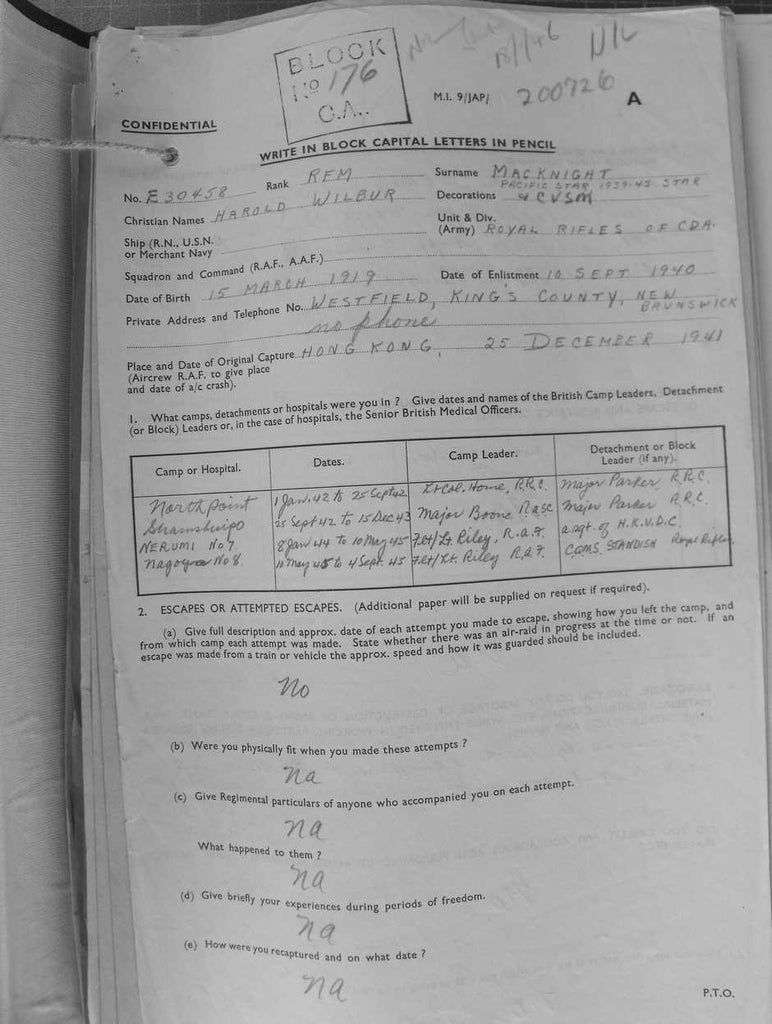 BLOCK
No 176
C.A..
18/1/46
N/C
M.I. 9/JAP/ 200726 A
CONFIDENTIAL
WRITE IN BLOCK CAPITAL LETTERS IN PENCIL
No. E30458 Rank REM Surname MACKNIGHT
Christian Names HAROLD WILBUR Decorations PACIFIC STAR 1939-45 STAR
& CVSM
Ship (R.N., U.S.N. or Merchant Navy
Unit & Div. (Army) ROYAL RIFLES OF CDA.
Squadron and Command (R.A.F., A.A.F.)
Date of Birth 15 MARCH 1919 Date of Enlistment 10 SEPT 1940
Private Address and Telephone No. WESTFIELD, KING'S COUNTY, NEW BRUNSWICK
no phone
Place and Date of Original Capture HONG KONG, 25 DECEMBER 1941
(Aircrew R.A.F. to give place
and date of a/c crash).
1. What camps, detachments or hospitals were you in ? Give dates and names of the British Camp Leaders, Detachment
(or Block) Leaders or, in the case of hospitals, the Senior British Medical Officers.
Camp or Hospital. Dates. Camp Leader. Detachment or Block Leader (if any).
North Point 1 Jan. 42 to 25 Sept 42 Lt Col. Home, R.R.C. Major Parker R.R.C.
Shamshuipo 25 Sept 42 to 15 Dec 43 Major Boone Rasc Major Parker R.R.C.
NERUMI No 7 8 Jan 44 to 10 May 45 Flt/Lt. Riley, R.a.F. a sgt. of H.K.V.D.C.
Nagoya No 8. 10 May 45 to 4 Sept. 45 Flt/Lt. Riley R.a.F. C.Q.M.S. STANDISH Royal Rifles
2. ESCAPES OR ATTEMPTED ESCAPES. (Additional paper will be supplied on request if required).
(a) Give full description and approx. date of each attempt you made to escape, showing how you left the camp, and
from which camp each attempt was made. State whether there was an air-raid in progress at the time or not. If an
escape was made from a train or vehicle the approx. speed and how it was guarded should be included.
No
(b) Were you physically fit when you made these attempts ?
na
(c) Give Regimental particulars of anyone who accompanied you on each attempt.
na
What happened to them ?
na
(d) Give briefly your experiences during periods of freedom.
na
(e) How were you recaptured and on what date ?
na
P.T.O.